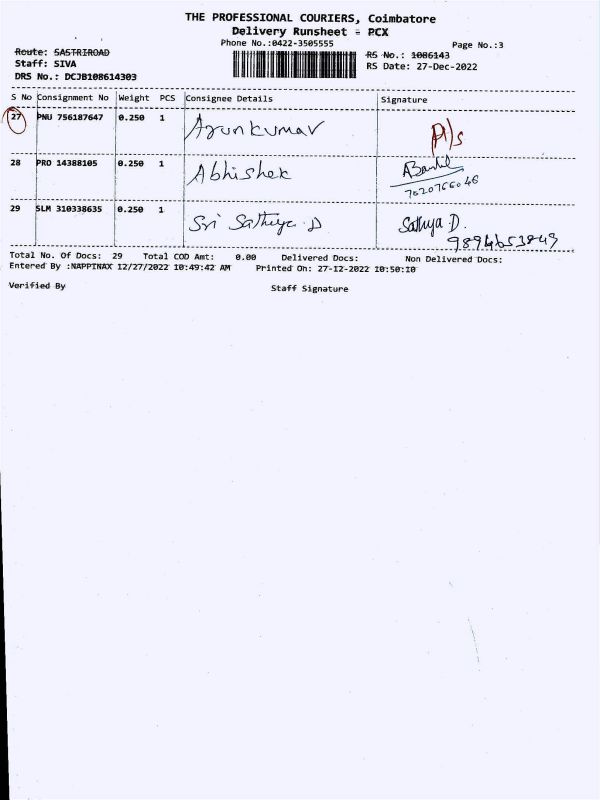 THE PROFESSIONAL COURIERS, Coimbatore
Delivery Runsheet - PCX
Phone No.:0422-3505555 Page No.:3
Route: SASTRIROAD RS No.: 1086143
Staff: SIVA RS Date: 27-Dec-2022
DRS No.: DCJB108614303
S No Consignment No Weight PCS Consignee Details Signature
27 PNU 756187647 0.250 1 Arunkumar P/s
28 PRO 14388105 0.250 1 Abhishek
7020766046
29 SLM 310338635 0.250 1 Sri Sathiya D Sathya D.
9894653849
Total No. Of Docs: 29 Total COD Amt: 0.00 Delivered Docs: Non Delivered Docs:
Entered By :NAPPINAX 12/27/2022 10:49:42 AM Printed On: 27-12-2022 10:50:10
Verified By Staff Signature